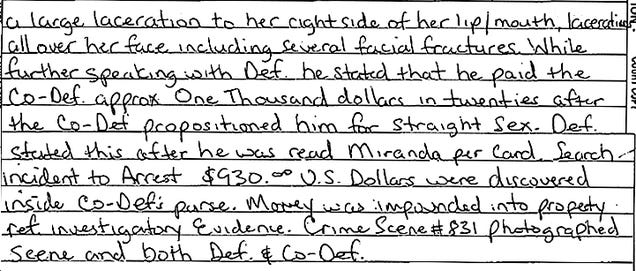 a large laceration to her right side of her lip/mouth, lacerations
all over her face including several facial fractures. While
further speaking with Def. he stated that he paid the
Co-Def. approx One Thousand dollars in twenties after
the Co-Def propositioned him for straight sex. Def.
stated this after he was read Miranda per Card. Search
incident to Arrest $930.00 U.S. Dollars were discovered
inside Co-Def's purse. Money was impounded into property
ref. investigatory Evidence. Crime Scene #831 photographed
Scene and both Def. & Co-Def.